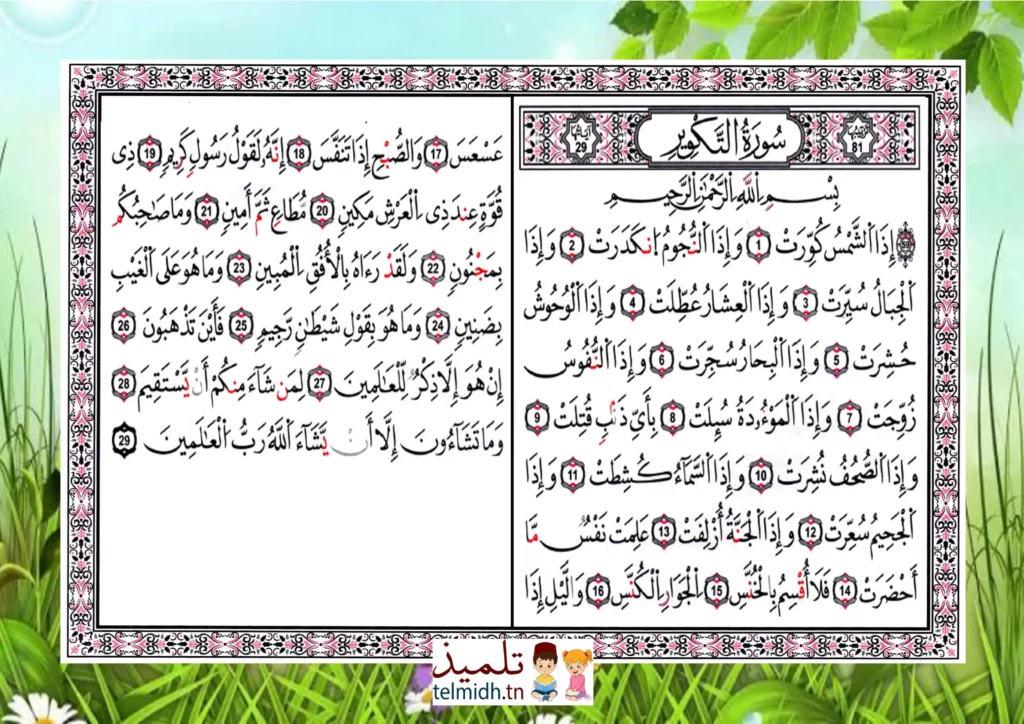 ترتيبها 81
سُورَةُ التَّكْوِيرِ
آياتها 29
بِسْمِ اِللَّهِ اِلرَّحْمَٰنِ اِلرَّحِيمِ
59 إِذَا اَلشَّمْسُ كُوِّرَتْ 1 وَإِذَا اَلنُّجُومُ اُنكَدَرَتْ 2 وَإِذَا
اَلْجِبَالُ سُيِّرَتْ 3 وَإِذَا اَلْعِشَارُ عُطِّلَتْ 4 وَإِذَا اَلْوُحُوشُ
حُشِرَتْ 5 وَإِذَا اَلْبِحَارُ سُجِّرَتْ 6 وَإِذَا اَلنُّفُوسُ
زُوِّجَتْ 7 وَإِذَا اَلْمَوْءُودَةُ سُئِلَتْ 8 بِأَيِّ ذَنۢبٍ قُتِلَتْ 9
وَإِذَا اَلصُّحُفُ نُشِرَتْ 10 وَإِذَا اَلسَّمَآءُ كُشِطَتْ 11 وَإِذَا
اَلْجَحِيمُ سُعِّرَتْ 12 وَإِذَا اَلْجَنَّةُ أُزْلِفَتْ 13 عَلِمَتْ نَفْسٌ مَّا
أَحْضَرَتْ 14 فَلَا أُقْسِمُ بِالْخُنَّسِ 15 اِلْجَوَارِ اِلْكُنَّسِ 16 وَالَّيْلِ إِذَا
عَسْعَسَ 17 وَالصُّبْحِ إِذَا تَنَفَّسَ 18 إِنَّهُ لَقَوْلُ رَسُولٍ كَرِيمٍ 19 ذِي
قُوَّةٍ عِندَ ذِي اِلْعَرْشِ مَكِينٍ 20 مُّطَاعٍ ثَمَّ أَمِينٍ 21 وَمَا صَاحِبُكُم
بِمَجْنُونٍ 22 وَلَقَدْ رَءَاهُ بِالْأُفُقِ اِلْمُبِينِ 23 وَمَا هُوَ عَلَى اَلْغَيْبِ
بِضَنِينٍ 24 وَمَا هُوَ بِقَوْلِ شَيْطَٰنٍ رَّجِيمٍ 25 فَأَيْنَ تَذْهَبُونَ 26
إِنْ هُوَ إِلَّا ذِكْرٌ لِّلْعَالَمِينَ 27 لِمَن شَآءَ مِنكُمْ أَنْ يَّسْتَقِيمَ 28
وَمَا تَشَآءُونَ إِلَّا أَنْ يَّشَآءَ اَللَّهُ رَبُّ اَلْعَٰلَمِينَ 29
تلميذ
telmidh.tn